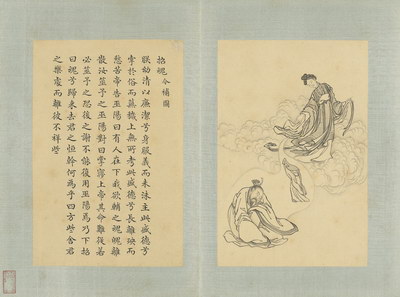 招魂今補圖
朕幼清以廉潔兮身服義而未沫主此盛德兮
牽於俗而蕪穢上無所考此盛德兮長離殃而
愁苦帝告巫陽曰有人在下我欲輔之魂魄離
散汝筮予之巫陽對曰掌夢上帝其命難從若
必筮予之恐後之謝不能復用巫陽焉乃下招
曰魂兮歸來去君之恆幹何為乎四方些舍君
之樂處而離彼不祥些